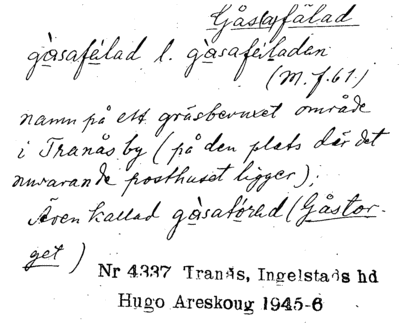 Gås(a)fälad
gåsafèlad l. gåsafèladen
(M. f. 61.)
namn på ett gräsbevuxet område
i Tranås by (på den plats där det
nuvarande posthuset ligger);
Även kallad gåsatóred (Gåstor-
get)
Nr 4337 Tranås, Ingelstads hd
Hugo Areskoug 1945-6